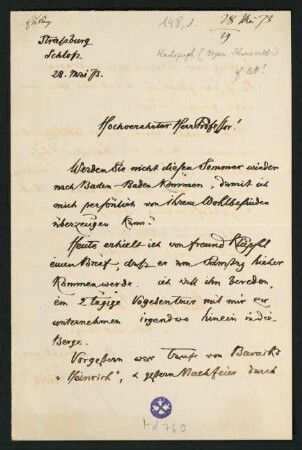 148,1.
28 Mai 73
19
Straßburg
Schloß
28. Mai 73.
Hochverehrter Herr Professor!
Werden Sie nicht diesen Sommer wieder
nach Baden-Baden kommen, damit ich
mich persönlich von Ihrem Wohlbefinden
überzeugen kann?
Heute erhielt ich von Freund Klüpfel
einen Brief, daß er am Samstag hieher
kommen werde. ich will ihn bereden,
ein 2 tägige Vogesentour mit mir zu
unternehmen irgendwo hinein in die
Berge.
Vorgestern war Taufe von Baracks
"Heinrich", & gestern Nachfeier durch
Md 760